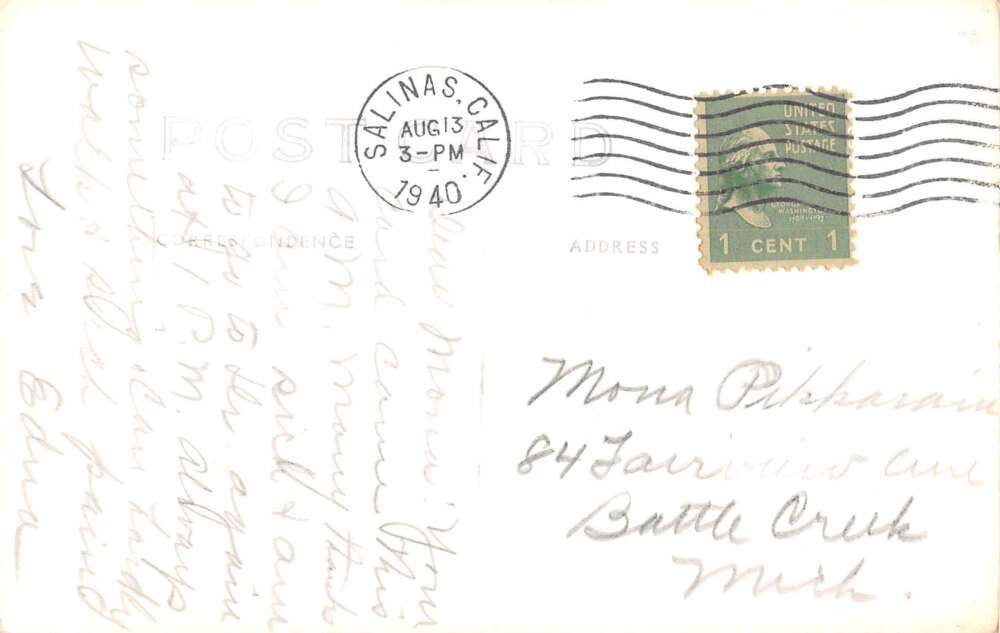 POST CARD
SALINAS, CALIF.
AUG 13
3-PM
1940
UNITED
STATES
POSTAGE
GEORGE
WASHINGTON
1 CENT 1
CORRESPONDENCE
ADDRESS
Dear Mona: Your
card came this
A.M. Many thanks
I am sick & am
to go to Dr. again
at 1 P.M. always
something. Can hardly
walk &
Love Edna
Mona
84 Fairview Ave
Battle Creek
Mich.